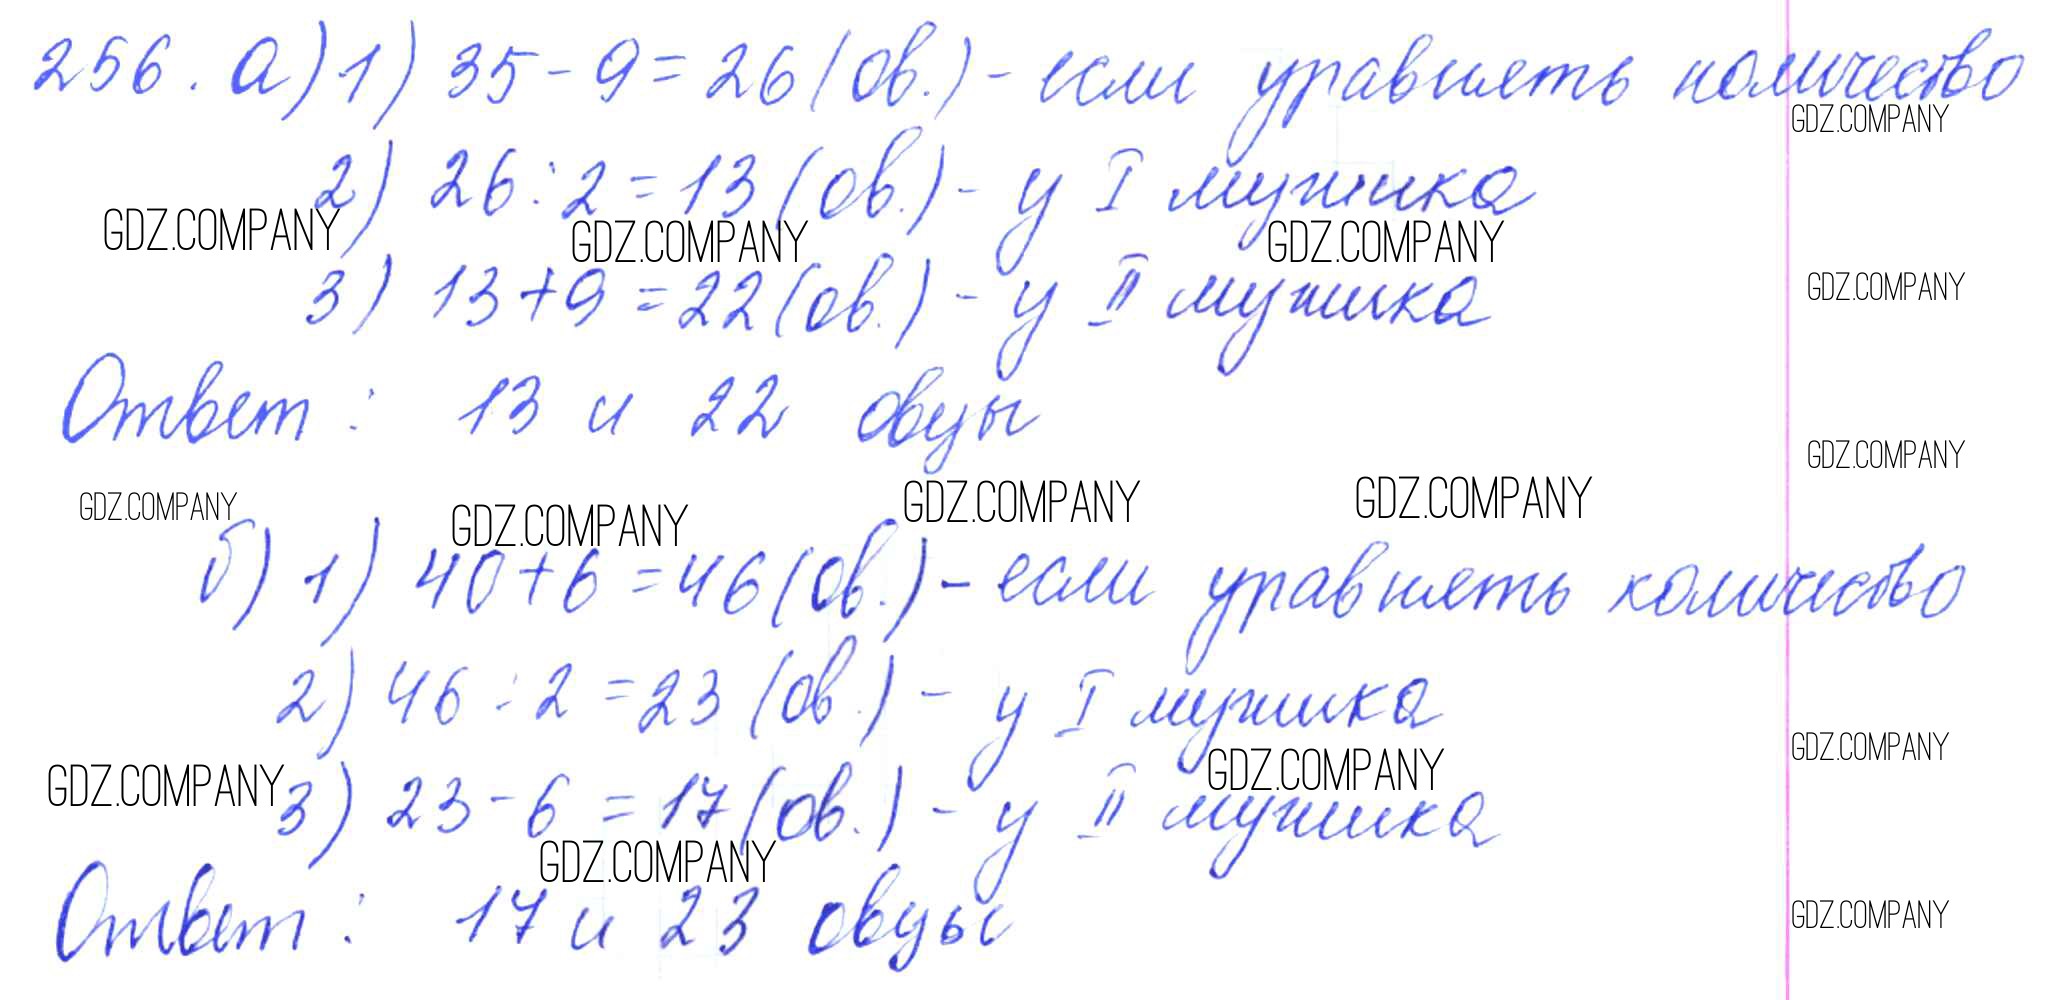 256. а) 1) 35 - 9 = 26 (ов.) - если уравнять количество
GDZ.COMPANY
2) 26 : 2 = 13 (ов.) - у I мужика
GDZ.COMPANY GDZ.COMPANY GDZ.COMPANY
3) 13 + 9 = 22 (ов.) - у II мужика
GDZ.COMPANY
Ответ: 13 и 22 овцы
GDZ.COMPANY
GDZ.COMPANY GDZ.COMPANY GDZ.COMPANY GDZ.COMPANY
б) 1) 40 + 6 = 46 (ов.) - если уравнять количество
2) 46 : 2 = 23 (ов.) - у I мужика
GDZ.COMPANY
GDZ.COMPANY GDZ.COMPANY
3) 23 - 6 = 17 (ов.) - у II мужика
GDZ.COMPANY
Ответ: 17 и 23 овцы
GDZ.COMPANY